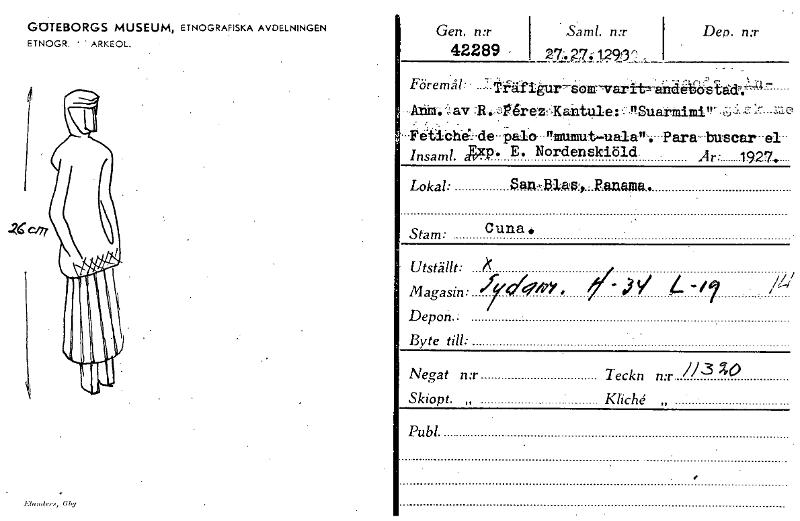 GÖTEBORGS MUSEUM, ETNOGRAFISKA AVDELNINGEN
ETNOGR. ARKEOL.
26 cm
Elanders, Gbg
Gen. n:r Saml. n:r Dep. n:r
42289 27.27.1293
Föremål: Träfigur som varit andebostad.
Anm. av R. Pérez Kantule: "Suarmimi"
Fetiché de palo "mumut-uala". Para buscar el
Insaml. av: Exp. E. Nordenskiöld År: 1927.
Lokal: San Blas, Panama.
Stam: Cuna.
Utställt: X
Magasin: Sydam. H-34 L-19 14
Depon.:
Byte till:
Negat n:r Teckn n:r 11320
Skiopt. „ Kliché „
Publ.